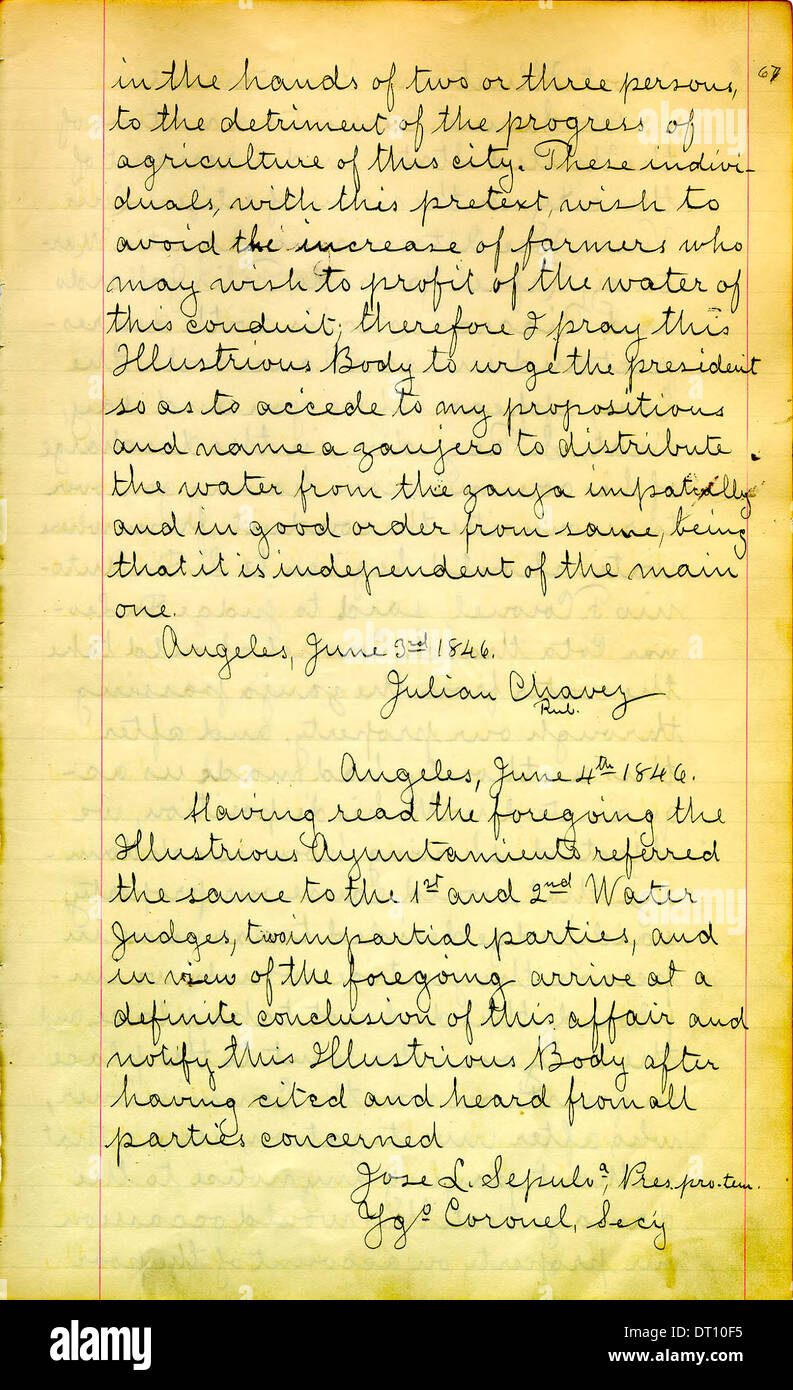 67
in the hands of two or three persons,
to the detriment of the progress of
agriculture of this city. These indivi-
duals, with this pretext, wish to
avoid the increase of farmers who
may wish to profit of the water of
this conduit; therefore I pray this
Illustrious Body to urge the president
so as to accede to my propositions
and name a zanjero to distribute
the water from the zanja impatially
and in good order from same, being
that it is independent of the main
one.
Angeles, June 3rd 1846.
Julian Chavez
Rub.
Angeles, June 4th 1846.
Having read the foregoing the
Illustrious Ayuntamiento referred
the same to the 1st and 2nd Water
Judges, two impartial parties, and
in view of the foregoing arrive at a
definite conclusion of this affair and
notify this Illustrious Body after
having cited and heard from all
parties concerned
Jose L. Sepulva, Pres. pro. tem.
Ygo Coronel, Secy
alamy
Image ID: DT10F5
www.alamy.com